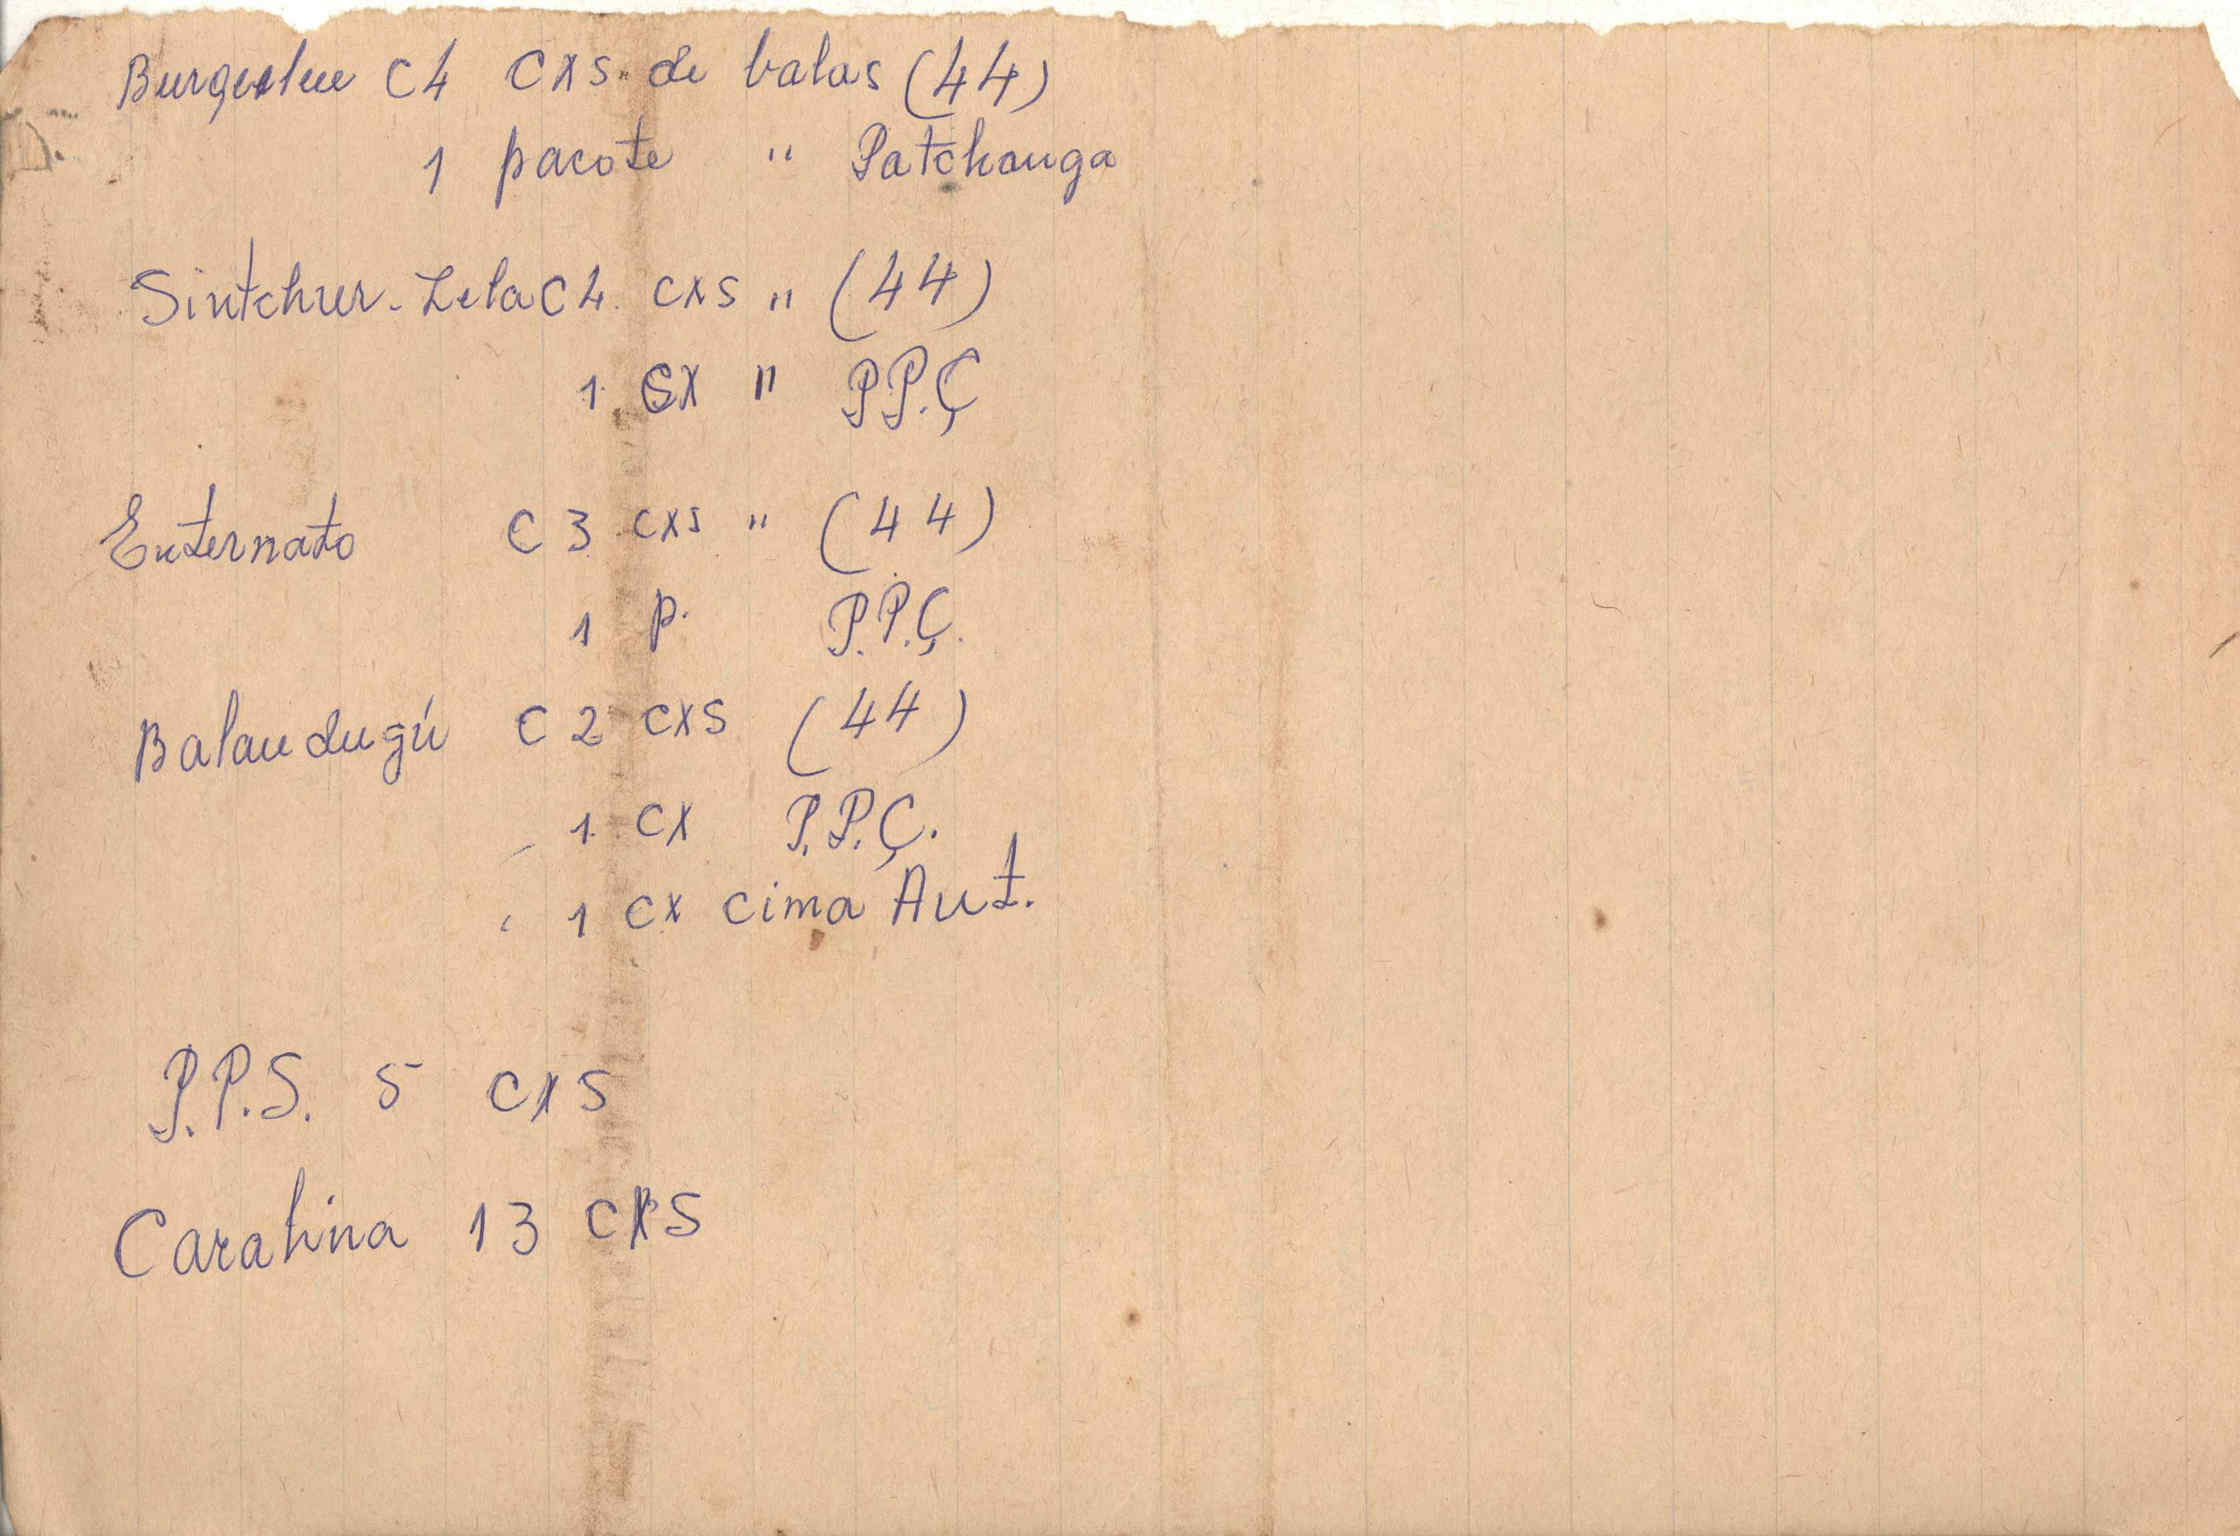 Burguelee C4 cxs. de balas (44)
1 pacote " Patchanga
Sintchur-Lela C4 cxs " (44)
1 cx " P.P.Ç
Enternato C 3 cxs " (44)
1 p. P.P.Ç.
Balandugú C 2 cxs (44)
1 cx P.P.Ç.
1 cx cima Aut.
P.P.S. 5 cxs
Carabina 13 cxs